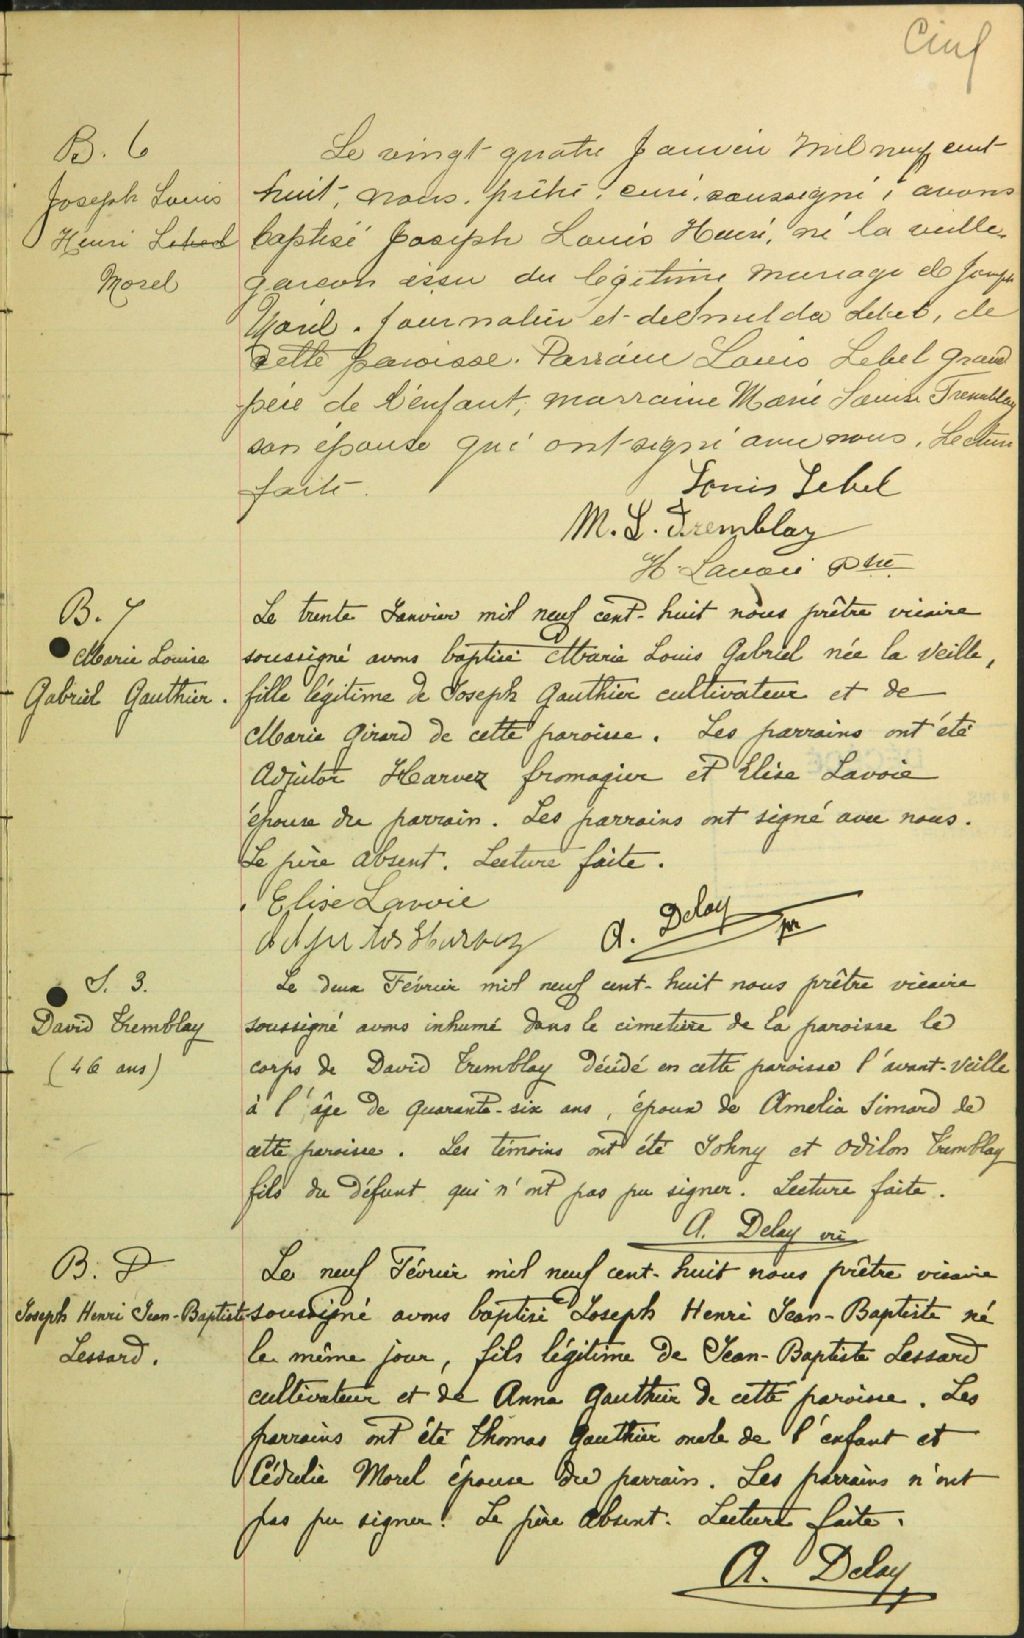 Cinq
B. 6
Joseph Louis
Henri Lebel
Morel
Le vingt quatre Janvier mil neuf cent
huit, nous, prêtre, curé, soussigné, avons
baptisé Joseph Louis Henri, né la veille,
garçon issu du légitime mariage de Joseph
Morel, journalier et de Lebel, de
cette paroisse. Parrain Louis Lebel grand
père de l'enfant, marraine Marie Louise Tremblay
son épouse qui ont signé avec nous. Lecture
faite.
Louis Lebel
M. L. Tremblay
H. Lavoie Ptre
B. 7
Marie Louise
Gabriel Gauthier.
Le trente Janvier mil neuf cent-huit nous prêtre vicaire
soussigné avons baptisé Marie Louis Gabriel née la veille,
fille légitime de Joseph Gauthier cultivateur et de
Marie Girard de cette paroisse. Les parrains ont été
Adjutor Harvez fromagier et Elise Lavoie
épouse du parrain. Les parrains ont signé avec nous.
Le père absent. Lecture faite.
Elise Lavoie
Adjutor Harvez
A. Delay ptr
S. 3.
David Tremblay
(46 ans)
Le deux Février mil neuf cent-huit nous prêtre vicaire
soussigné avons inhumé dans le cimetière de la paroisse le
corps de David Tremblay décédé en cette paroisse l'avant-veille
à l'âge de quarante-six ans, époux de Amelia Simard de
cette paroisse. Les témoins ont été Johny et Odilon Tremblay
fils du défunt qui n'ont pas pu signer. Lecture faite.
A. Delay vic
B. 8
Joseph Henri Jean-Baptiste
Lessard.
Le neuf Février mil neuf cent-huit nous prêtre vicaire
soussigné avons baptisé Joseph Henri Jean-Baptiste né
le même jour, fils légitime de Jean-Baptiste Lessard
cultivateur et de Anna Gauthier de cette paroisse. Les
parrains ont été Thomas Gauthier oncle de l'enfant et
Cédulie Morel épouse du parrain. Les parrains n'ont
pas pu signer. Le père absent. Lecture faite.
A. Delay